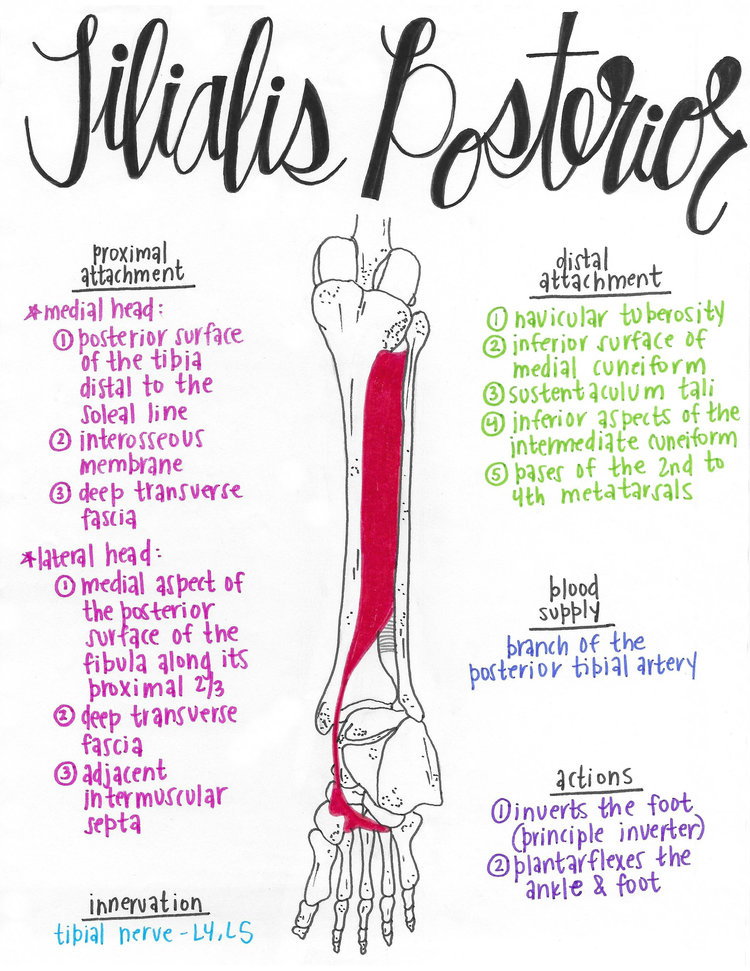 Tibialis Posterior
proximal
attachment
*medial head:
① posterior surface
of the tibia
distal to the
soleal line
② interosseous
membrane
③ deep transverse
fascia
*lateral head:
① medial aspect of
the posterior
surface of the
fibula along its
proximal 2/3
② deep transverse
fascia
③ adjacent
intermuscular
septa
innervation
tibial nerve - L4, L5
distal
attachment
① navicular tuberosity
② inferior surface of
medial cuneiform
③ sustentaculum tali
④ inferior aspects of the
intermediate cuneiform
⑤ bases of the 2nd to
4th metatarsals
blood
supply
branch of the
posterior tibial artery
actions
① inverts the foot
(principle inverter)
② plantarflexes the
ankle & foot